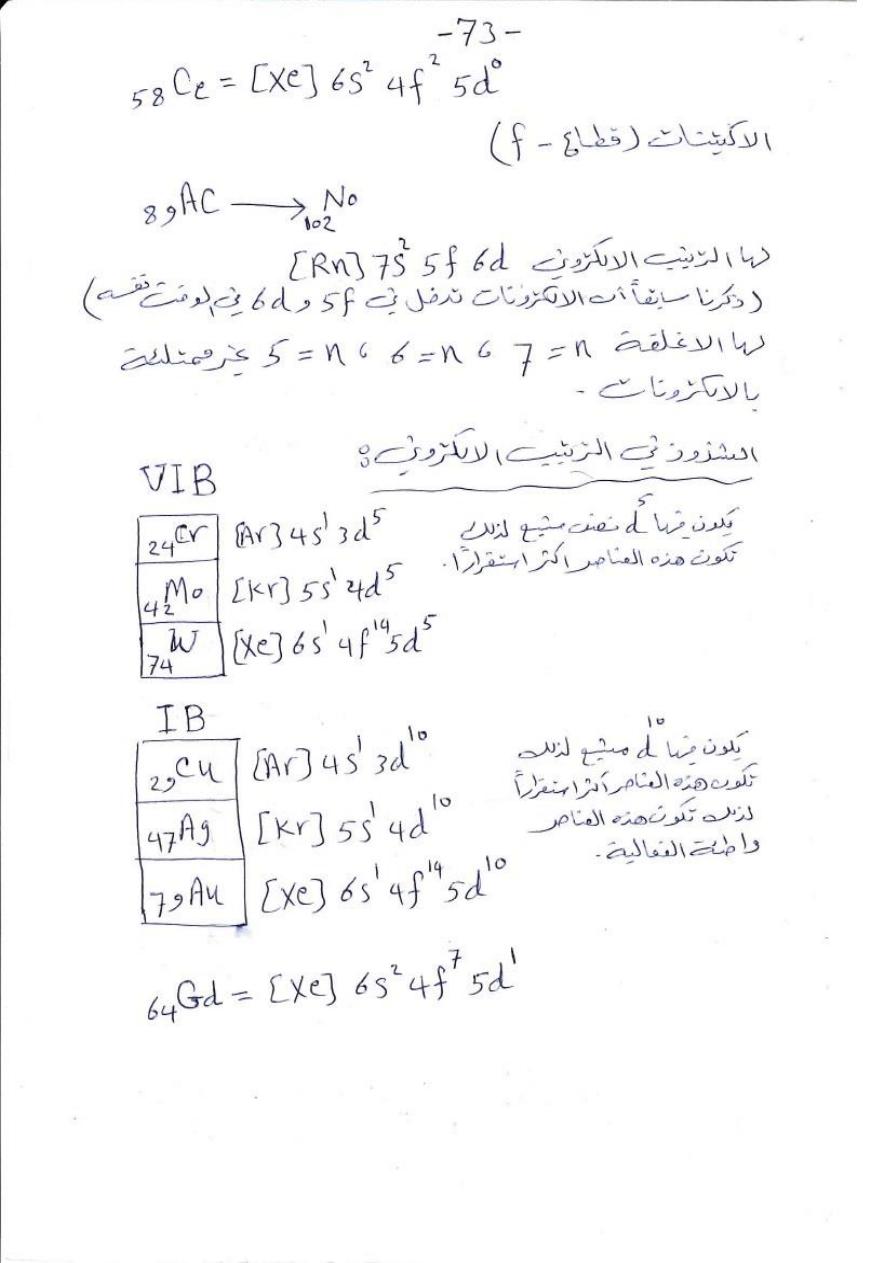 -73-
₅₈Ce = [Xe] 6s² 4f² 5d⁰
الاكتينات (قطاع - f)
₈₉AC ⟶ ₁₀₂No
لها الترتيب الالكتروني [Rn] 7s² 5f 6d
(ذكرنا سابقاً ان الالكترونات تدخل في 5f و 6d في الوقت نفسه)
لها الاغلفة n = 7 ، n = 6 ، n = 5 غير ممتلئة
بالالكترونات .
الشذوذ في الترتيب الالكتروني :
VIB
₂₄Cr [Ar] 4s¹ 3d⁵
₄₂Mo [Kr] 5s¹ 4d⁵
₇₄W [Xe] 6s¹ 4f¹⁴ 5d⁵
يكون فيها d⁵ نصف مشبع لذلك
تكون هذه العناصر اكثر استقراراً.
IB
₂₉Cu [Ar] 4s¹ 3d¹⁰
₄₇Ag [Kr] 5s¹ 4d¹⁰
₇₉Au [Xe] 6s¹ 4f¹⁴ 5d¹⁰
يكون فيها d¹⁰ مشبع لذلك
تكون هذه العناصر اكثر استقراراً
لذلك تكون هذه العناصر
واطئة الفعالية.
₆₄Gd = [Xe] 6s² 4f⁷ 5d¹